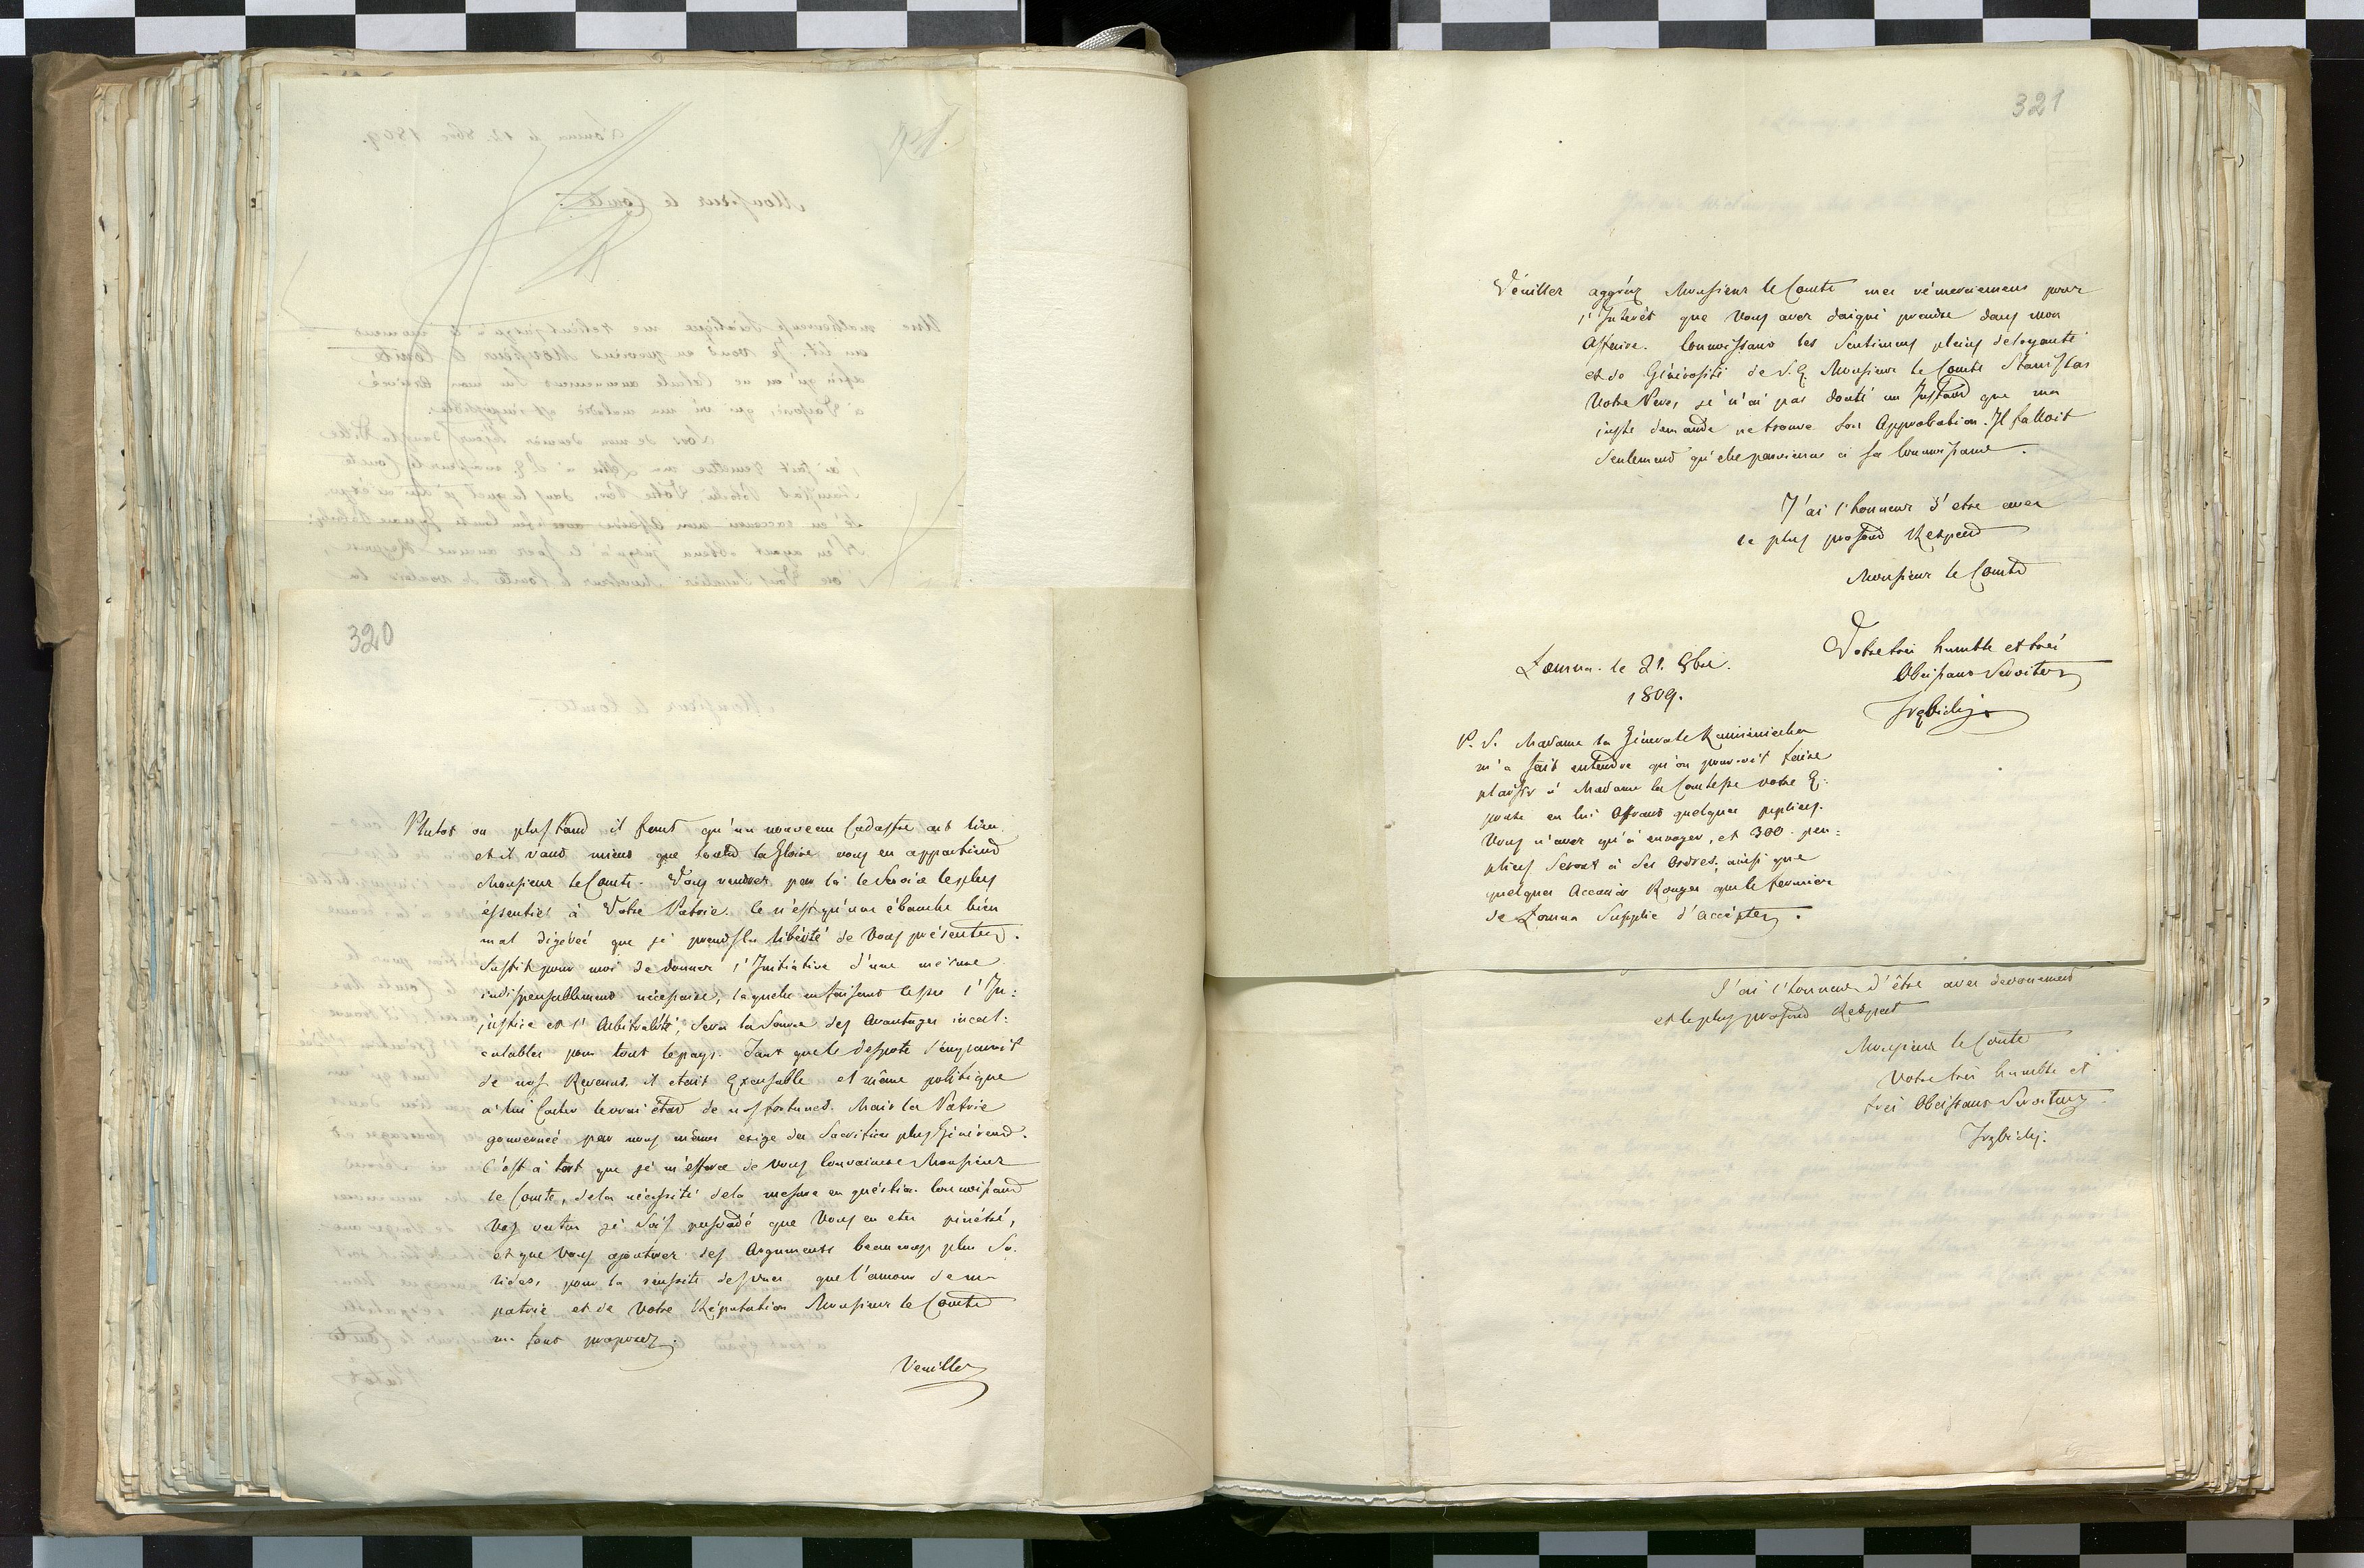 320
Plutot ou plus tard il faut qu'un nouveau Cadastre ait lieu
et il vaut mieux que toute la Gloire vous en appartiend
Monsieur le Comte. Vous rendrez par là le Service le plus
éssentiel à Votre Patrie. Ce n'est qu'une ébauche bien
mal digéreé que je prends la liberté de Vous présenter.
Suffit pour moi de donner l'Initiative d'une mésure
indispensablement nécessaire, laquelle en faisant cesser l'In:
justice et l'Arbitralité, sera la Source des Avantages incal:
culables pour tout le pays. Tant que le despote s'emparoit
de nos Revenus, il etait Excusable et même politique
a lui Cacher le vrai état de nos fortunes. Mais la Patrie
gouverneé par nous mêmes exige des Sacrifices plus Généreux.
C'est à tort que je m'efforce de Vous Convaincre Monsieur
le Comte, de la nécessité de la mesure en quéstion. Connoissant
Vos vertus je suis persuadé que Vous en etes pénétré,
et que Vous ajouterez des Arguments beaucoup plus So:
lides, pour la réussite des vues que l'amour de ma
patrie et de Votre Réputation Monsieur le Comte
me font proposer.
Veuillez
321
Veuillez aggréez Monsieur le Comte mes rémerciemens pour
l'Interêt que Vous avez daigné prendre dans mon
Affaire. Connoissant les Sentimens pleins de loyauté
et de Générosité de S. E. Monsieur le Comte Stanislas
Votre Pere, je n'ai pas douté un Instant que ma
juste demande ne trouve son Approbation. Il falloit
Seulement qu'elle parvienne à sa Connoissance.
J'ai l'honneur d'etre avec
le plus profond Respect
Monsieur le Comte
Votre trés humble et trés
Obeissant Serviteur
Łomna. le 21. 8bre.
1809.
P. S. Madame la Générale Kamieniecka
m'a fait entendre qu'on pourroit faire
plaisir à Madame la Comtesse votre E:
pouse en lui Offrant quelques pepliers.
Vous n'avez qu'à envoyer, et 300. peu:
pliers seront à Ses Ordres, ainsi que
quelques Accacias Rouges que le fermier
de Łomna Supplie d'Accépter.
J'ai l'honneur d'être avec devouement
et le plus profond Respect
Monsieur le Comte
Votre trés humble et
trés Obeissant Serviteur